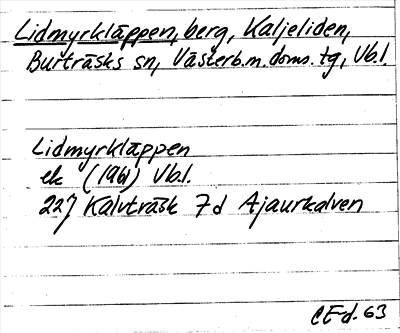 Lidmyrkläppen, berg, Kaljeliden,
Burträsks sn, Västerb.m.doms.tg, Vb.l.
Lidmyrkläppen
ek (1961) Vb.l.
227 Kalvträsk 7d Ajaurkalven
CE-d. 63